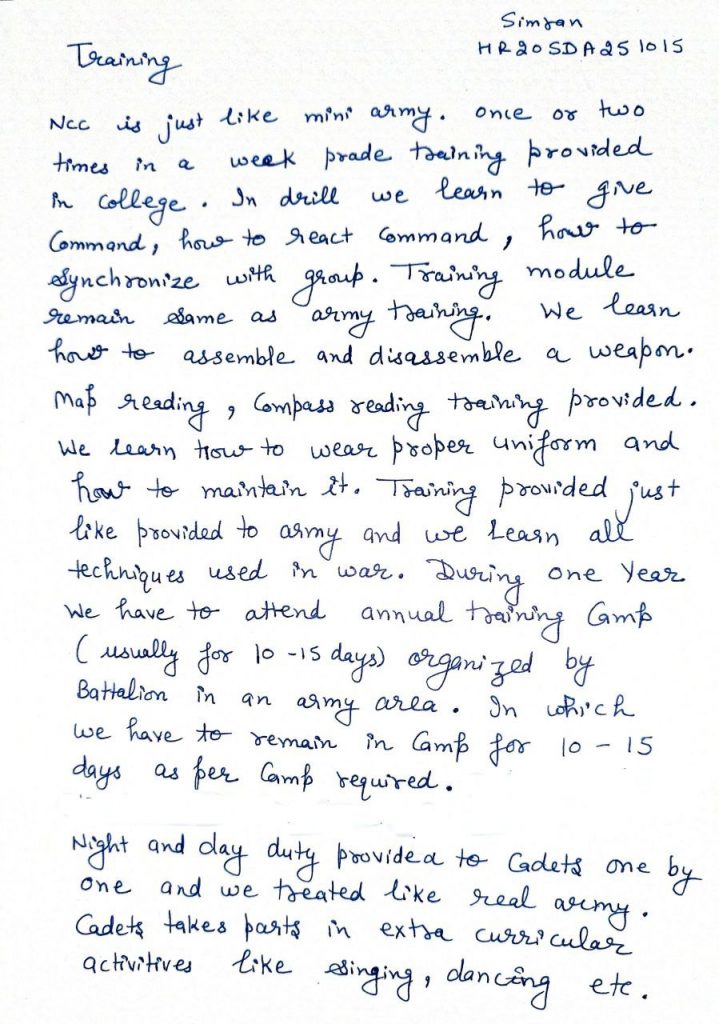 Simran
HR20SDA251015
Training
NCC is just like mini army. once or two
times in a week prade training provided
in college. In drill we learn to give
Command, how to react command, how to
synchronize with group. Training module
remain same as army training. We learn
how to assemble and disassemble a weapon.
Map reading, Compass reading training provided.
We learn how to wear proper uniform and
how to maintain it. Training provided just
like provided to army and we learn all
techniques used in war. During one Year
We have to attend annual training Camp
(usually for 10-15 days) organized by
Battalion in an army area. In which
we have to remain in Camp for 10-15
days as per Camp required.
Night and day duty provided to Cadets one by
one and we treated like real army.
Cadets takes parts in extra curricular
activitives like singing, dancing etc.